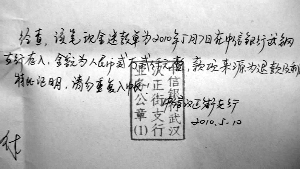 经查，该笔现金送款单为2010年5月7日在中信银行武钢
支行存入，金额为人民币贰万贰仟元整，款项来源为退款
特此证明，请勿重复入账！
中信汉正街支行
2010.5.10
中信银行武汉
汉正街支行
业务公章
(1)